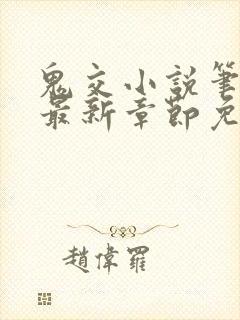 鬼交小説筆
最新章節免
趙偉羅